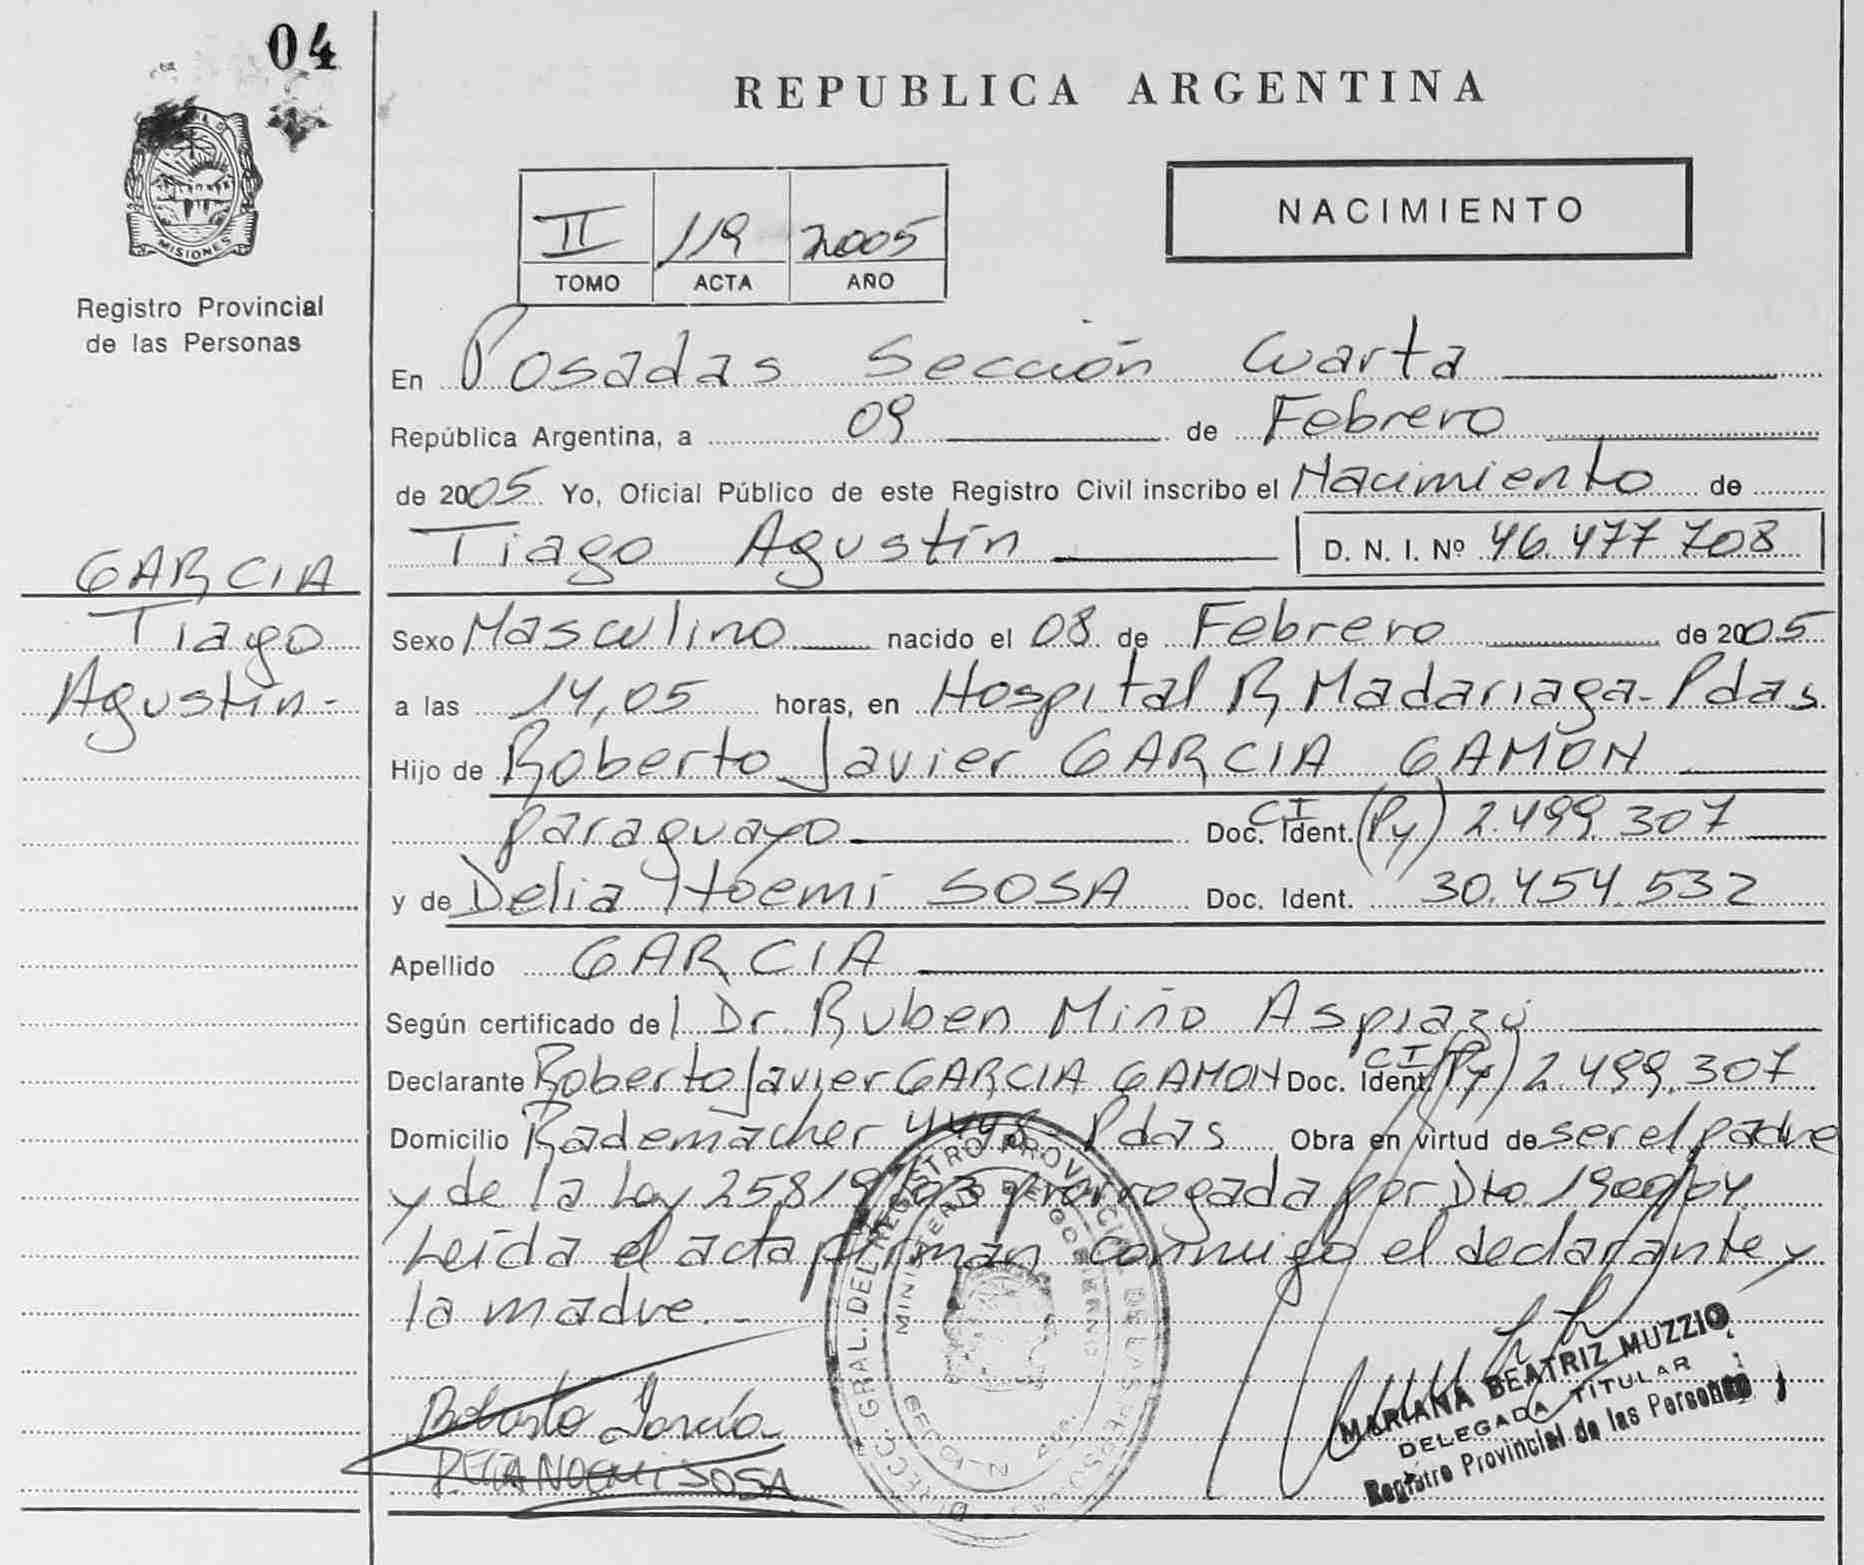 04
REPUBLICA ARGENTINA
MISIONES
Registro Provincial
de las Personas
II 119 2005
TOMO ACTA AÑO
NACIMIENTO
En Posadas Sección Cuarta
República Argentina, a 09 de Febrero
de 2005 Yo, Oficial Público de este Registro Civil inscribo el Nacimiento de
Tiago Agustín D. N. I. Nº 46.477.708
GARCIA
Tiago
Agustín-
Sexo Masculino nacido el 08 de Febrero de 2005
a las 14,05 horas, en Hospital R. Madariaga-Pdas
Hijo de Roberto Javier GARCIA GAMON
paraguayo Doc. Ident. CI (Py) 2.499.307
y de Delia Noemi SOSA Doc. Ident. 30.454.532
Apellido GARCIA
Según certificado del Dr. Ruben Miño Aspiazú
Declarante Roberto Javier GARCIA GAMON Doc. Ident. CI (Py) 2.499.307
Domicilio Rademacher 4448 Pdas Obra en virtud de ser el padre
y de la Ley 25819/03 prorrogada por Dto. 1900/04
Leída el acta firman conmigo el declarante y
la madre.-
Roberto García
DELIA NOEMI SOSA
DIRECC. GRAL. DEL REGISTRO PROVINCIAL DE LAS PERSONAS
MINISTERIO DE GOBIERNO
MARIANA BEATRIZ MUZZIO
DELEGADA TITULAR
Registro Provincial de las Personas